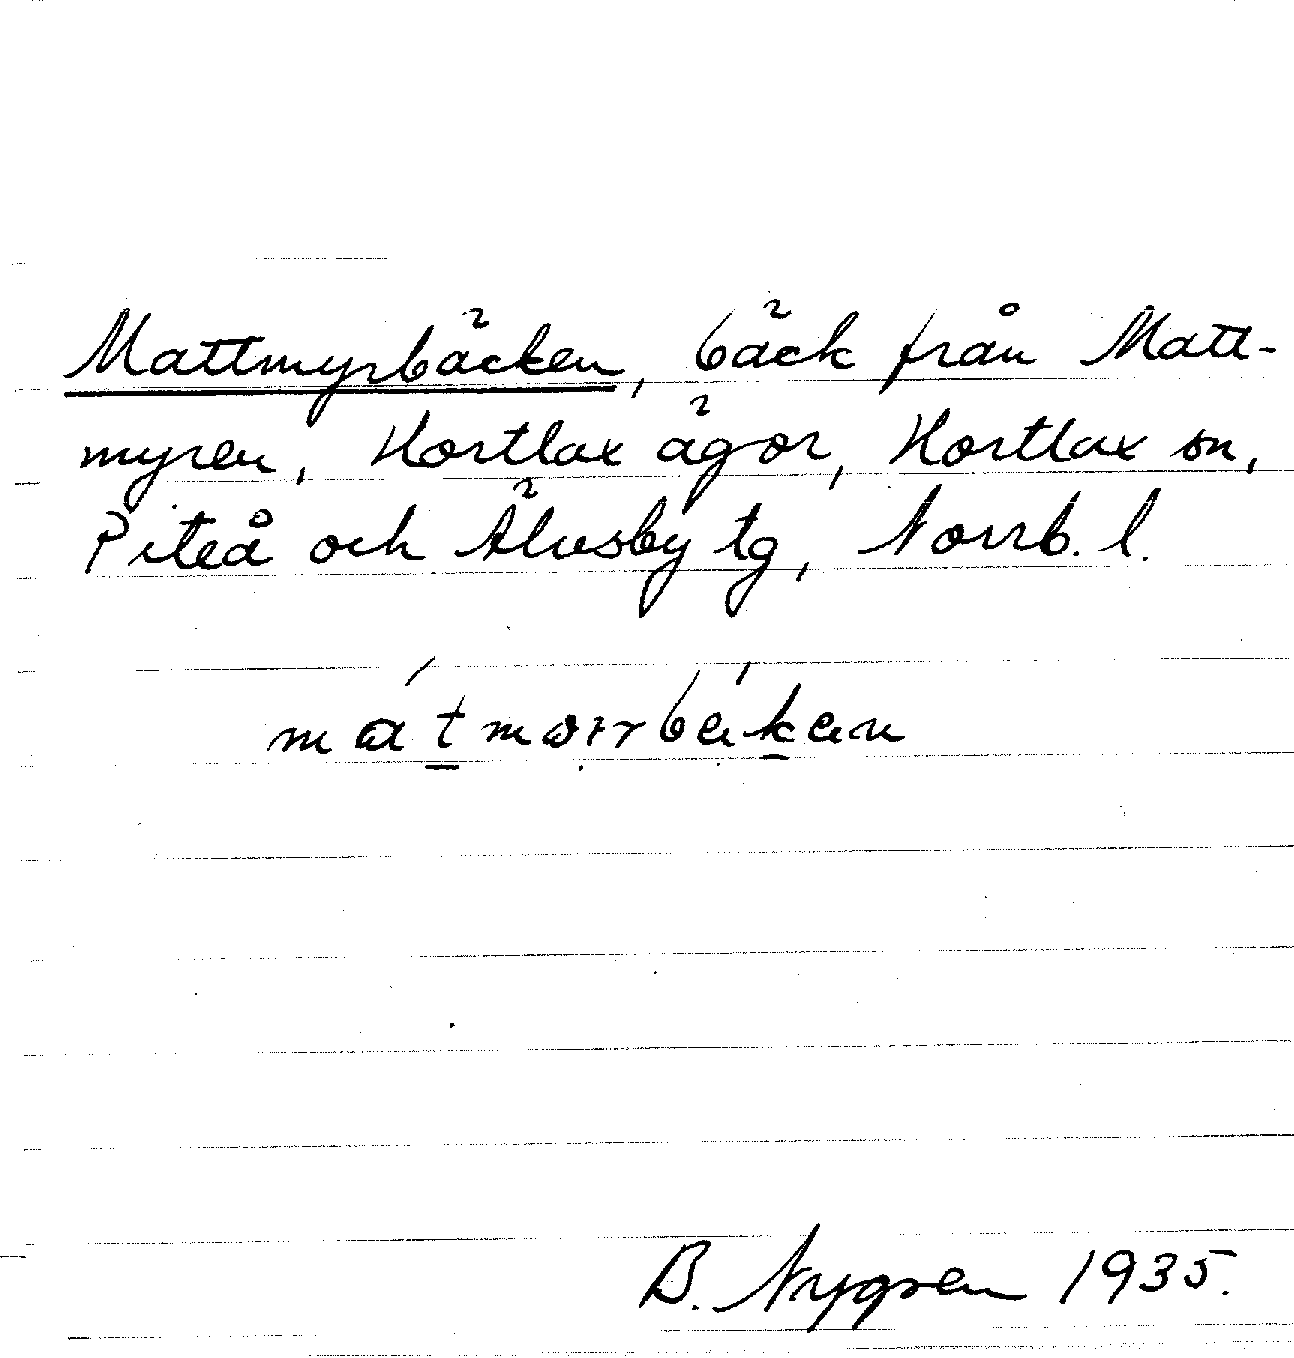 Mattmyrbäcken, bäck från Matt-
myren, Hortlax ägor, Hortlax sn,
Piteå och Älvsby tg, Norrb. l.
B. Nygren 1935.